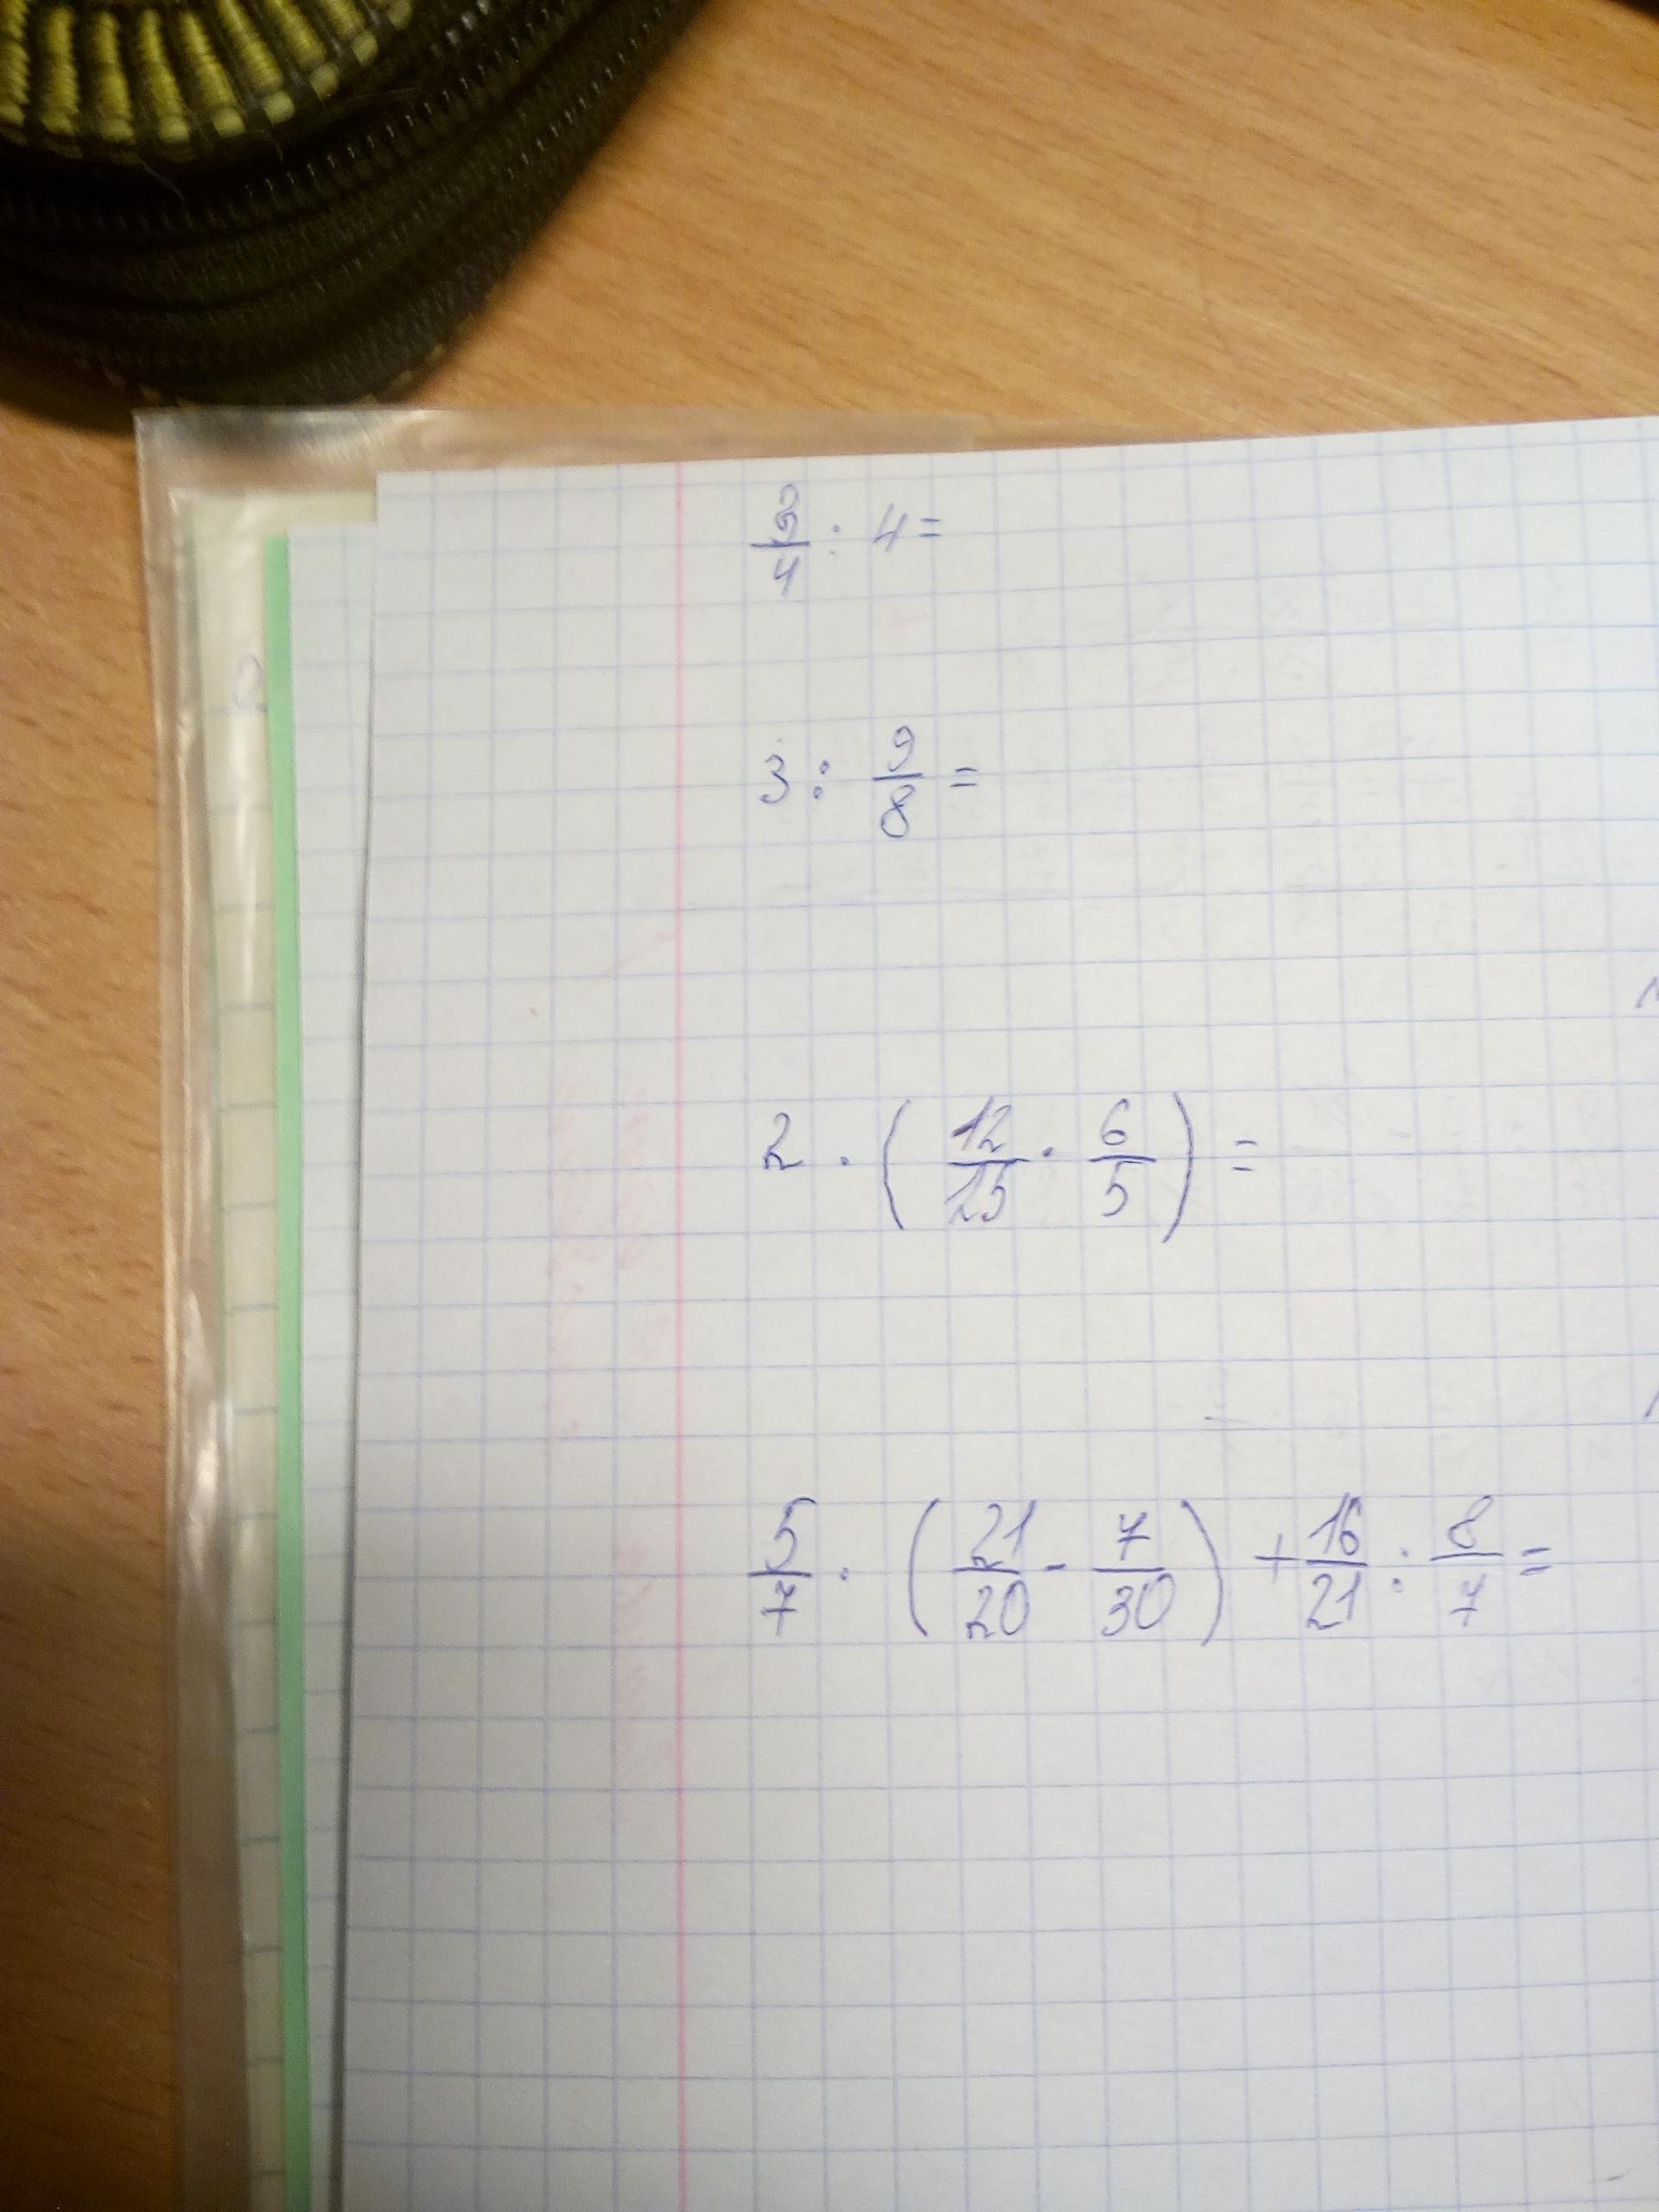 9/4 : 4 =
3 : 9/8 =
2 · (12/15 · 6/5) =
5/7 · (21/20 - 7/30) + 16/21 : 8/7 =